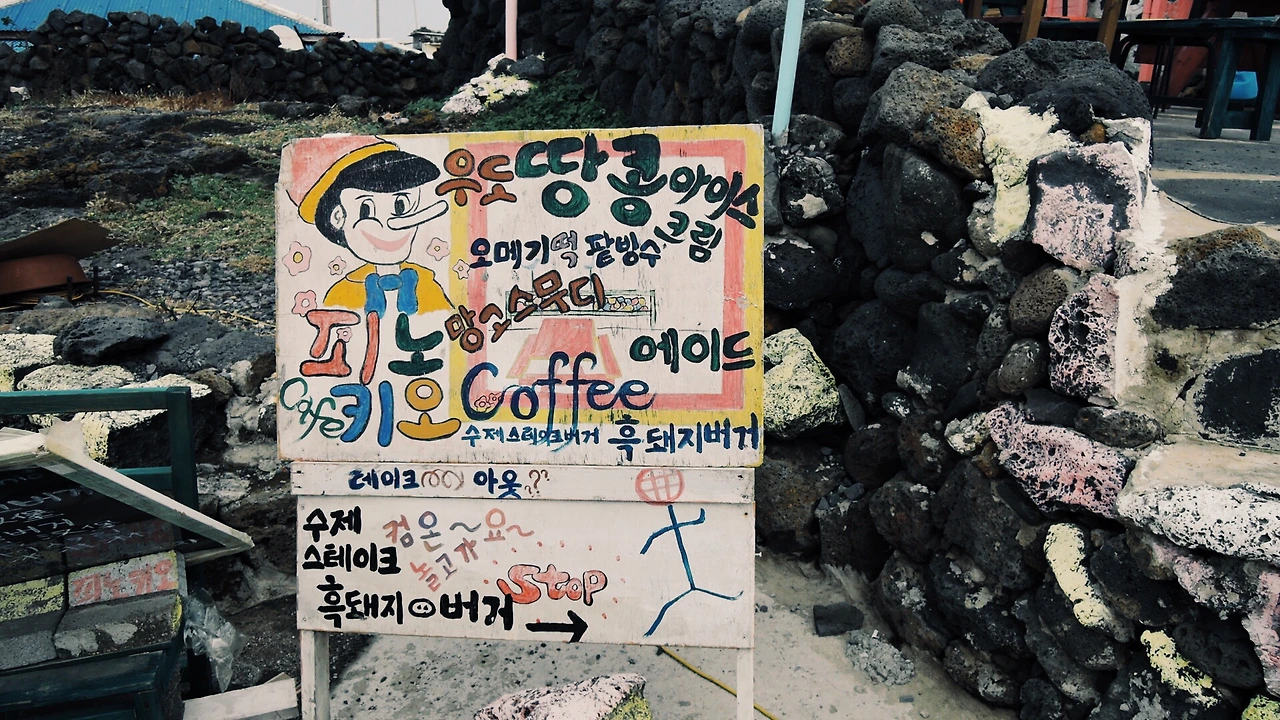 우도 땅콩 아이스
크림
오메기떡 팥빙수
망고스무디
피노
에이드
Cafe 키오
Coffee
수제스테이크버거 흑돼지버거
테이크 아웃??
수제
스테이크
흑돼지 버거
컴온~요~
놀고가
Stop
피노키오